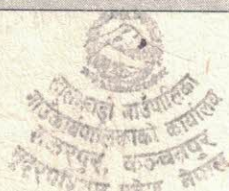 लालझाडी गाउँपालिका
गाउँकार्यपालिकाको कार्यालय
कञ्चनपुर
सुदूरपश्चिम प्रदेश नेपाल